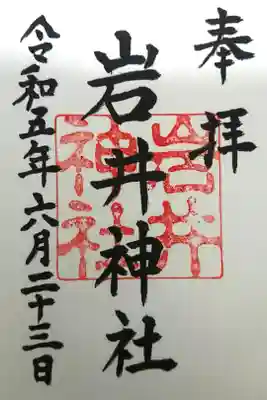 奉拝
岩井神社
岩井神社
令和五年六月二十三日